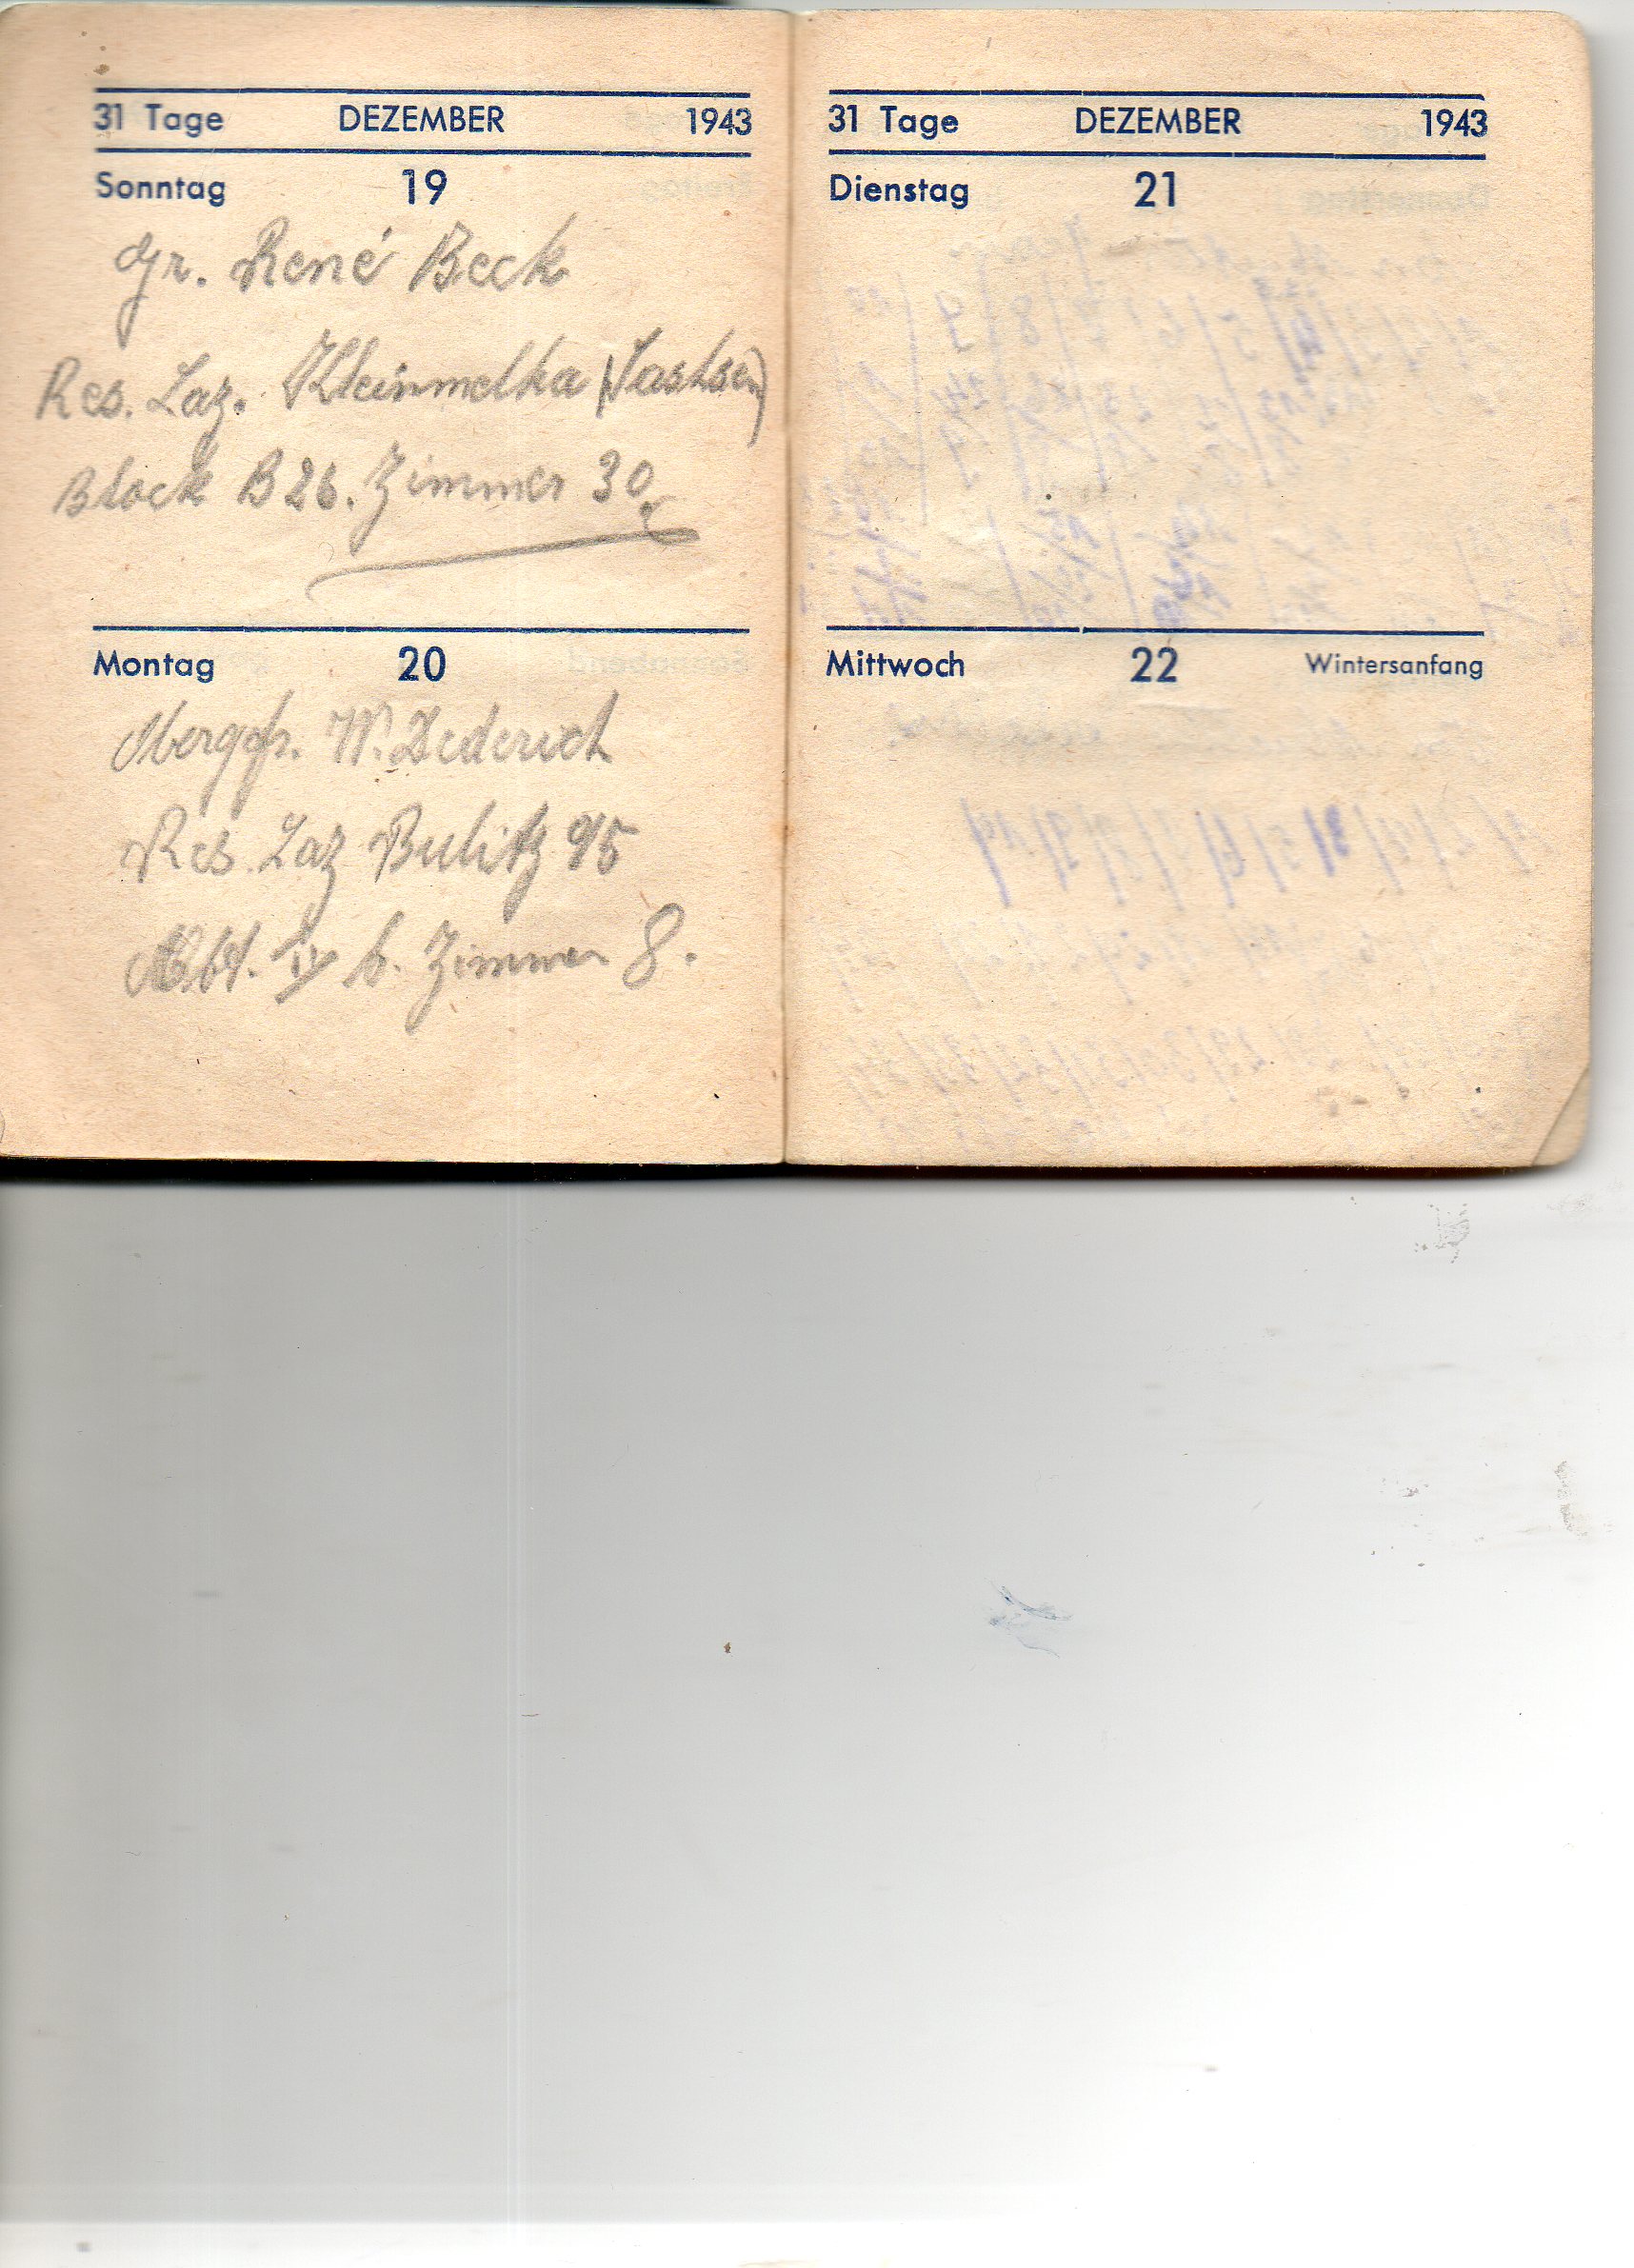 31 Tage DEZEMBER 1943
Sonntag 19
Gr. René Beck
Res. Laz. Kleinmelka (Sachsen)
Block B 26. Zimmer 30.
Montag 20
Obergefr. W. Dederich
Res. Laz Bulitz 95
Abt. IV b. Zimmer 8.
31 Tage DEZEMBER 1943
Dienstag 21
Mittwoch 22 Wintersanfang